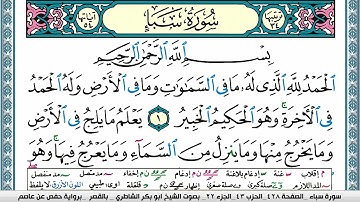 سُورَةُ سَبَإٍ
ترتيبها ٣٤
آياتها ٥٤
بِسْمِ اللَّهِ الرَّحْمَٰنِ الرَّحِيمِ
الْحَمْدُ لِلَّهِ الَّذِي لَهُ مَا فِي السَّمَاوَاتِ وَمَا فِي الْأَرْضِ وَلَهُ الْحَمْدُ
فِي الْآخِرَةِ ۚ وَهُوَ الْحَكِيمُ الْخَبِيرُ ١ يَعْلَمُ مَا يَلِجُ فِي الْأَرْضِ
وَمَا يَخْرُجُ مِنْهَا وَمَا يَنزِلُ مِنَ السَّمَاءِ وَمَا يَعْرُجُ فِيهَا ۚ وَهُوَ
سورة سباء . الصفحة ٤٢٨ . الجزء ٢٢ . بصوت الشيخ أبو بكر الشاطري . بالقصر . برواية حفص عن عاصم